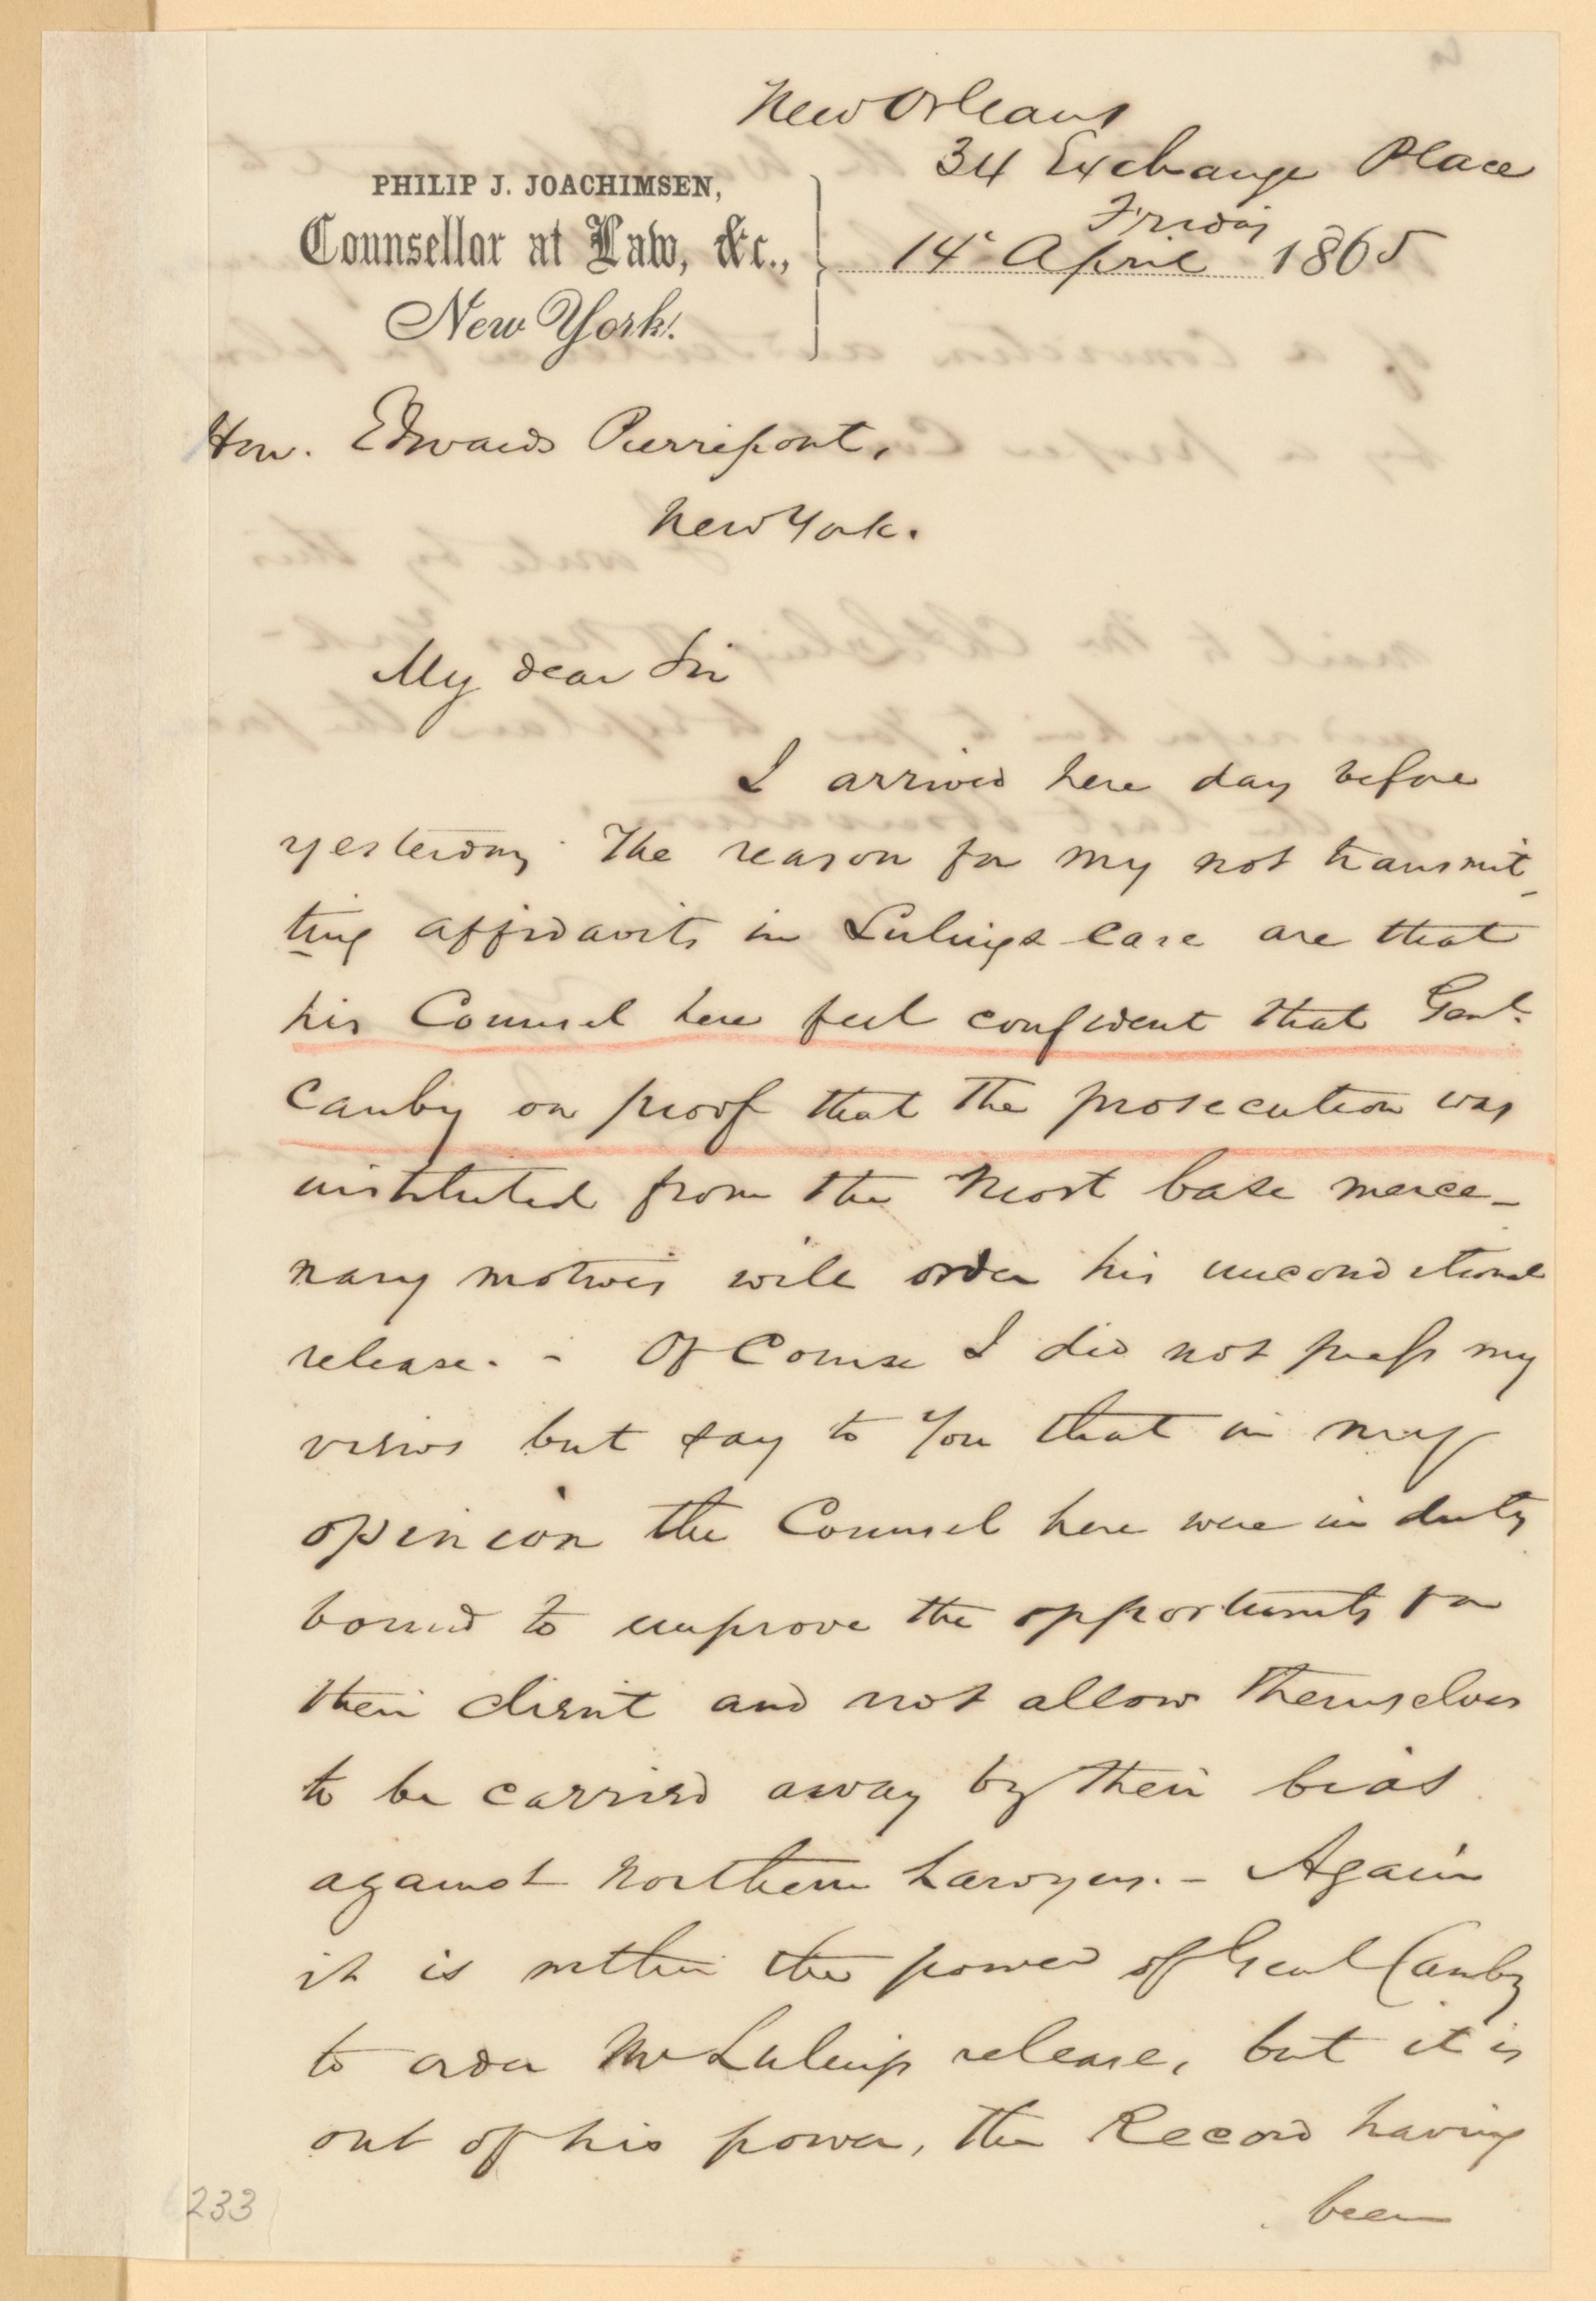 New Orleans
34 Exchange Place
Friday
PHILIP J. JOACHIMSEN,
Counsellor at Law, &c.,
New York.
14 April 1865
Hon. Edwards Pierrepont,
New York.
My dear Sir
I arrived here day before
yesterday. The reason for my not transmit-
ting affidavits in Lulings case are that
his Counsel here feel confident that Genl.
Canby on proof that the prosecution was
instituted from the most base merce-
nary motives will order his unconditional
release. - Of Course I did not press my
views but say to You that in my
opinion the Counsel here were in duty
bound to improve the opportunity for
their client and not allow themselves
to be carried away by their bias
against Northern Lawyers. - Again
it is within the power of Genl Canby
to order Mr Luling release, but it is
out of his power, the Record having
been
233